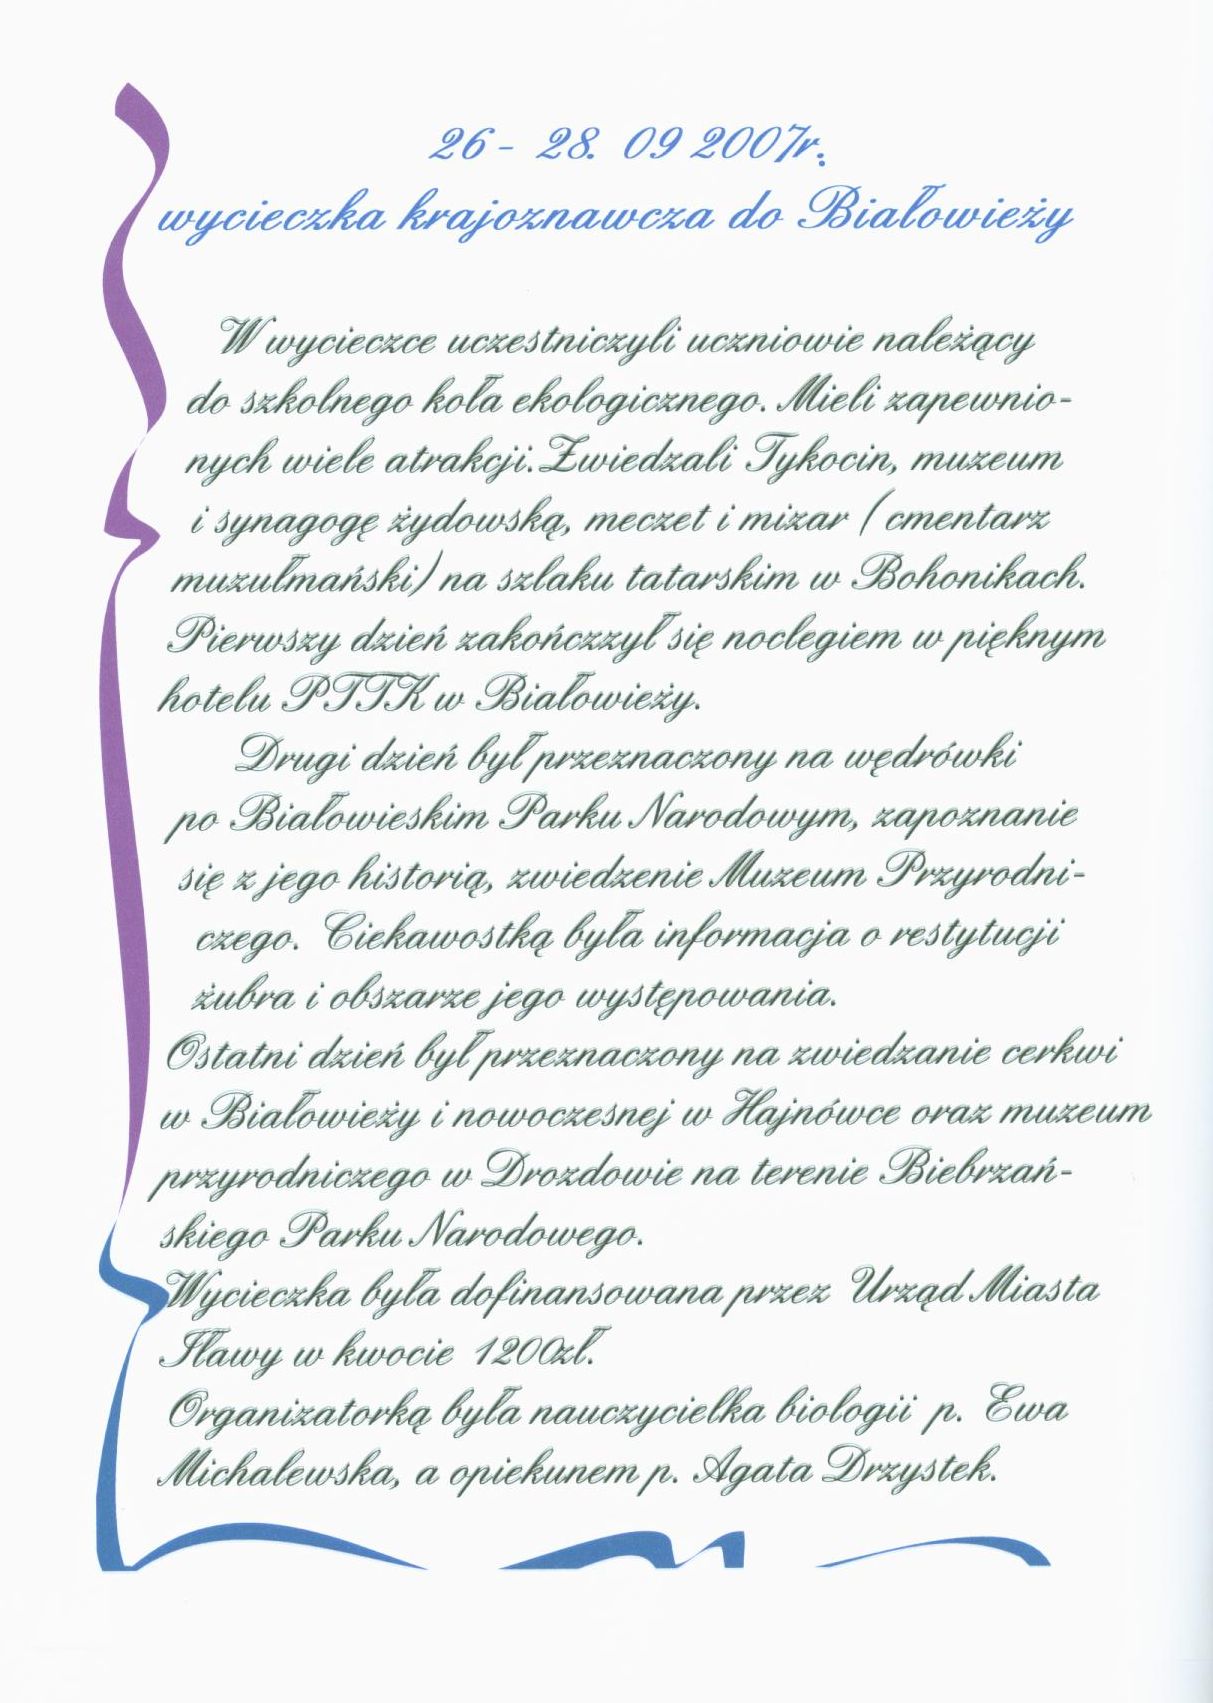 26 - 28. 09 2007r.
wycieczka krajoznawcza do Białowieży
W wycieczce uczestniczyli uczniowie należący
do szkolnego koła ekologicznego. Mieli zapewnio-
nych wiele atrakcji. Zwiedzali Tykocin, muzeum
i synagogę żydowską, meczet i mizar ( cmentarz
muzułmański) na szlaku tatarskim w Bohonikach.
Pierwszy dzień zakończzył się noclegiem w pięknym
hotelu PTTK w Białowieży.
Drugi dzień był przeznaczony na wędrówki
po Białowieskim Parku Narodowym, zapoznanie
się z jego historią, zwiedzenie Muzeum Przyrodni-
czego. Ciekawostką była informacja o restytucji
żubra i obszarze jego występowania.
Ostatni dzień był przeznaczony na zwiedzanie cerkwi
w Białowieży i nowoczesnej w Hajnówce oraz muzeum
przyrodniczego w Drozdowie na terenie Biebrzań-
skiego Parku Narodowego.
Wycieczka była dofinansowana przez Urząd Miasta
Iławy w kwocie 1200zł.
Organizatorką była nauczycielka biologii p. Ewa
Michalewska, a opiekunem p. Agata Drzystek.